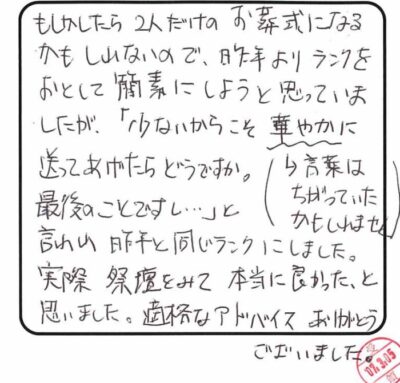 もしかしたら2人だけの お葬式になる
かもしれないので、昨年よりランクを
おとして簡素にしようと思っていま
したが、「少ないからこそ 華やかに
送ってあげたらどうですか。
最後のことですし…」と
(↳言葉は
ちがっていた
かもしれません)
言われ 昨年と同じランクにしました。
実際 祭壇をみて 本当に良かった、と
思いました。適格なアドバイス ありがとう
ございました。
3.05